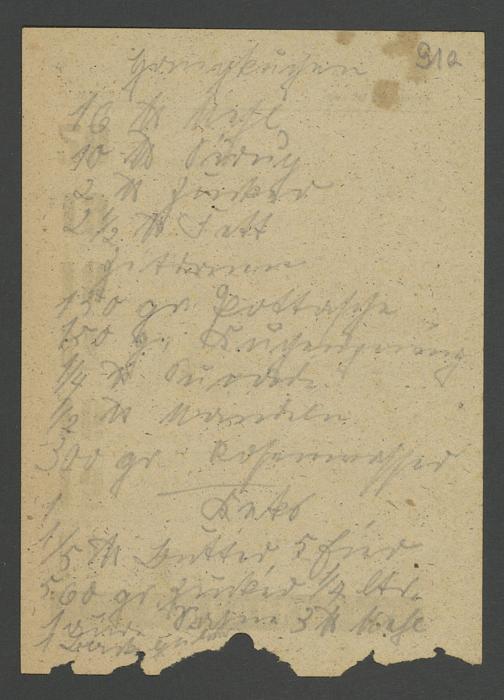 Honigkuchen
91a
16 ℔ Mehl
10 ℔ Sirup
2 ℔ Zucker
2 1/2 ℔ Fett
Zitronen
150 gr Pottasche
150 gr Kuchengewürz
1/4 ℔
1/2 ℔ Mandeln
300 gr Rosenwasser
Keks
1/5 ℔ Butter 5 Eier
560 gr Zucker 1/4 ltr.
Sahne 3 ℔ Mehl
1